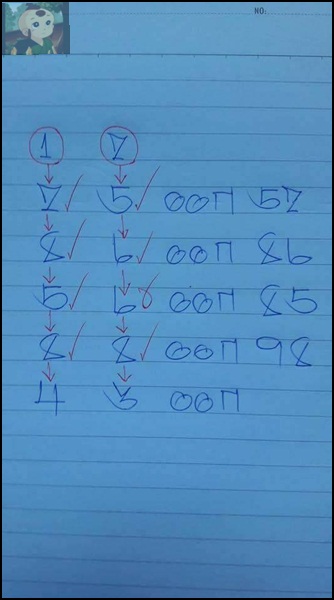 NO.
1 7
7 ✓ 5 ✓ ออก 57
8 ✓ 6 ✓ ออก 86
5 ✓ 6 ออก 85
8 ✓ 8 ✓ ออก 98
4 3 ออก